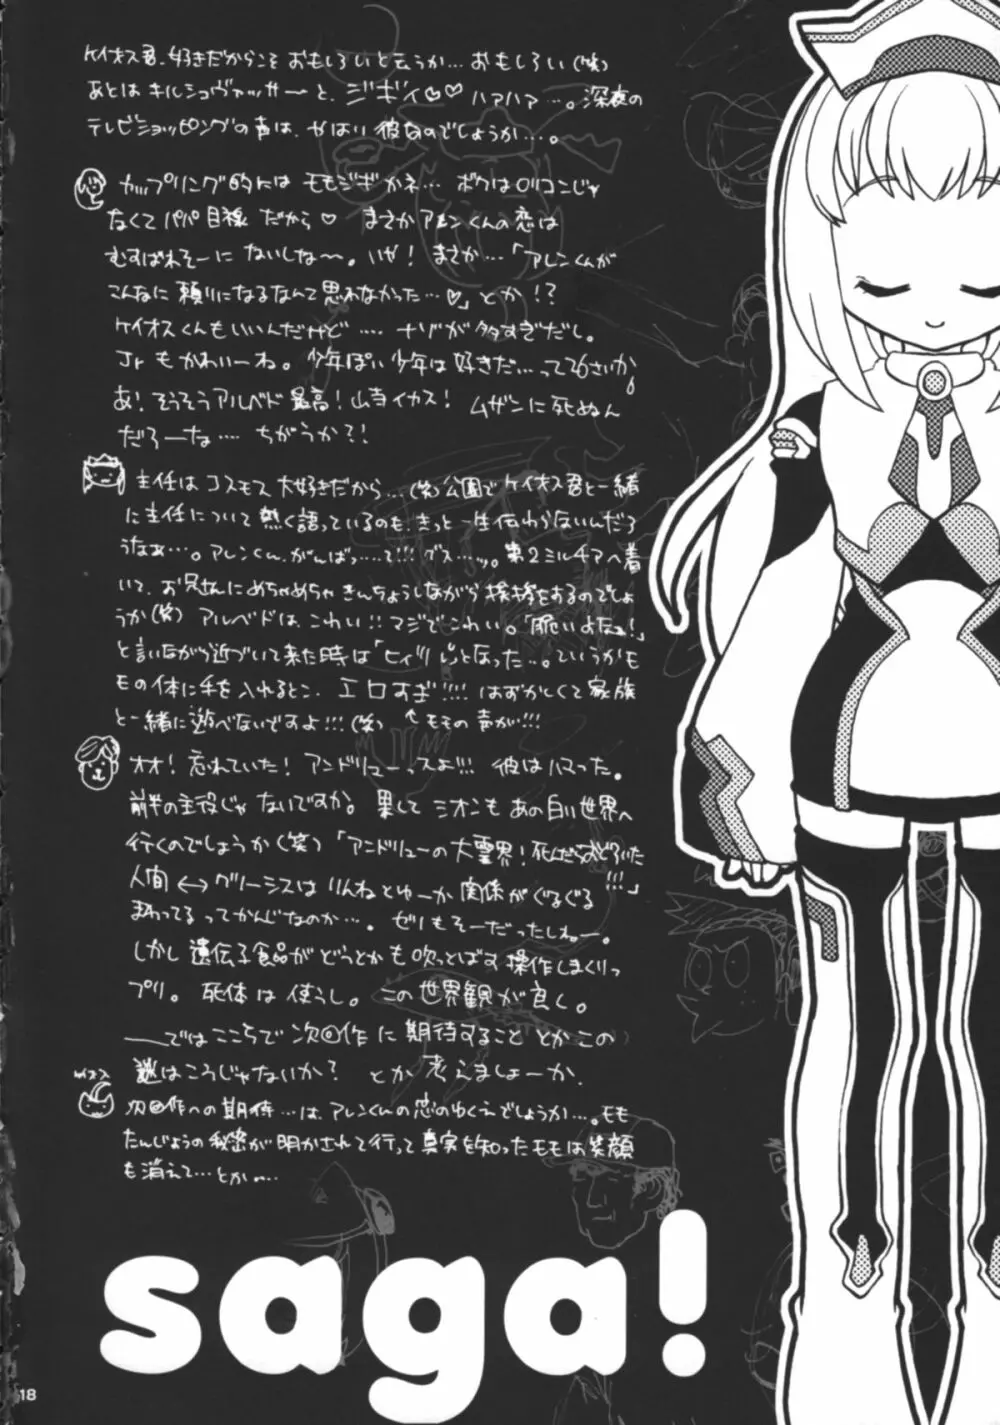 ケイオス君、好きだからこそ おもしろいと云うか… おもしろい(笑)
あとは キルシュヴァッサーと、ジギィ♡♡ ハアハア…。深夜の
テレビショッピングの声は、やはり 彼なのでしょうか…。
カップリング的には モモジギかネ… ボクはロリコンじゃ
なくて パパ目線 だから♡ まさかアレンくんの恋は
むすばれそーに ないしな〜。いや! まさか…「アレンくんが
こんなに 頼りになるなんて思わなかった…♡」とか!?
ケイオスくんもいいんだけど…. ナゾが多すぎだし。
Jr もかわいーね。少年ぽい少年は好きだ…って26さいか。
あ! そうそうアルベド 最高! 山寺イカス! ムザンに死ぬん
だろーな…. ちがうか?!
主任は コスモス 大好きだから…(笑)公園で ケイオス君と一緒
に主任について 熱く語っているのも、きっと一生伝わらないんだろ
うなぁ…。アレンくん、がんばっ……て!!! グス…ッ。第2ミルチアへ着
いて、お兄さんにめちゃめちゃ きんちょうしながら 挨拶をするのでしょ
うか(笑) アルベドは、こわい!! マジでこわい。「脆いよなぁ!」
と言いながら近づいて来た時は「ヒィツ」となった…。というかモ
モの体に手を入れるとこ、エロすぎ!!!! はずかしくて家族
と一緒に遊べないですよ!!!(笑) ↑モモの声が!!!
オオ! 忘れていた! アンドリューっスよ!!! 彼はハマった。
前半の主役じゃないですか。果して シオンも あの白い世界へ
行くのでしょうか(笑)「アンドリューの大霊界! 死んだらおどろいた!!!」
人間 ←→ グノーシスは りんねとゆーか 関係がぐるぐる
まわってるってかんじなのか…。ゼノもそーだったしねー。
しかし 遺伝子食品がどうとかも吹っとばす 操作しまくりっ
プリ。死体は使うし。この世界観が良く。
――ではここらで 次回作 に 期待すること とかこの
謎はこうじゃないか? とか 考えましょーか。
ケイオス
次回作への期待…は、アレンくんの恋のゆくえでしょうか…。モモ
たんじょうの秘密が 明かされて行って 真実を知ったモモは笑顔
も消えて…とか…
saga!
18